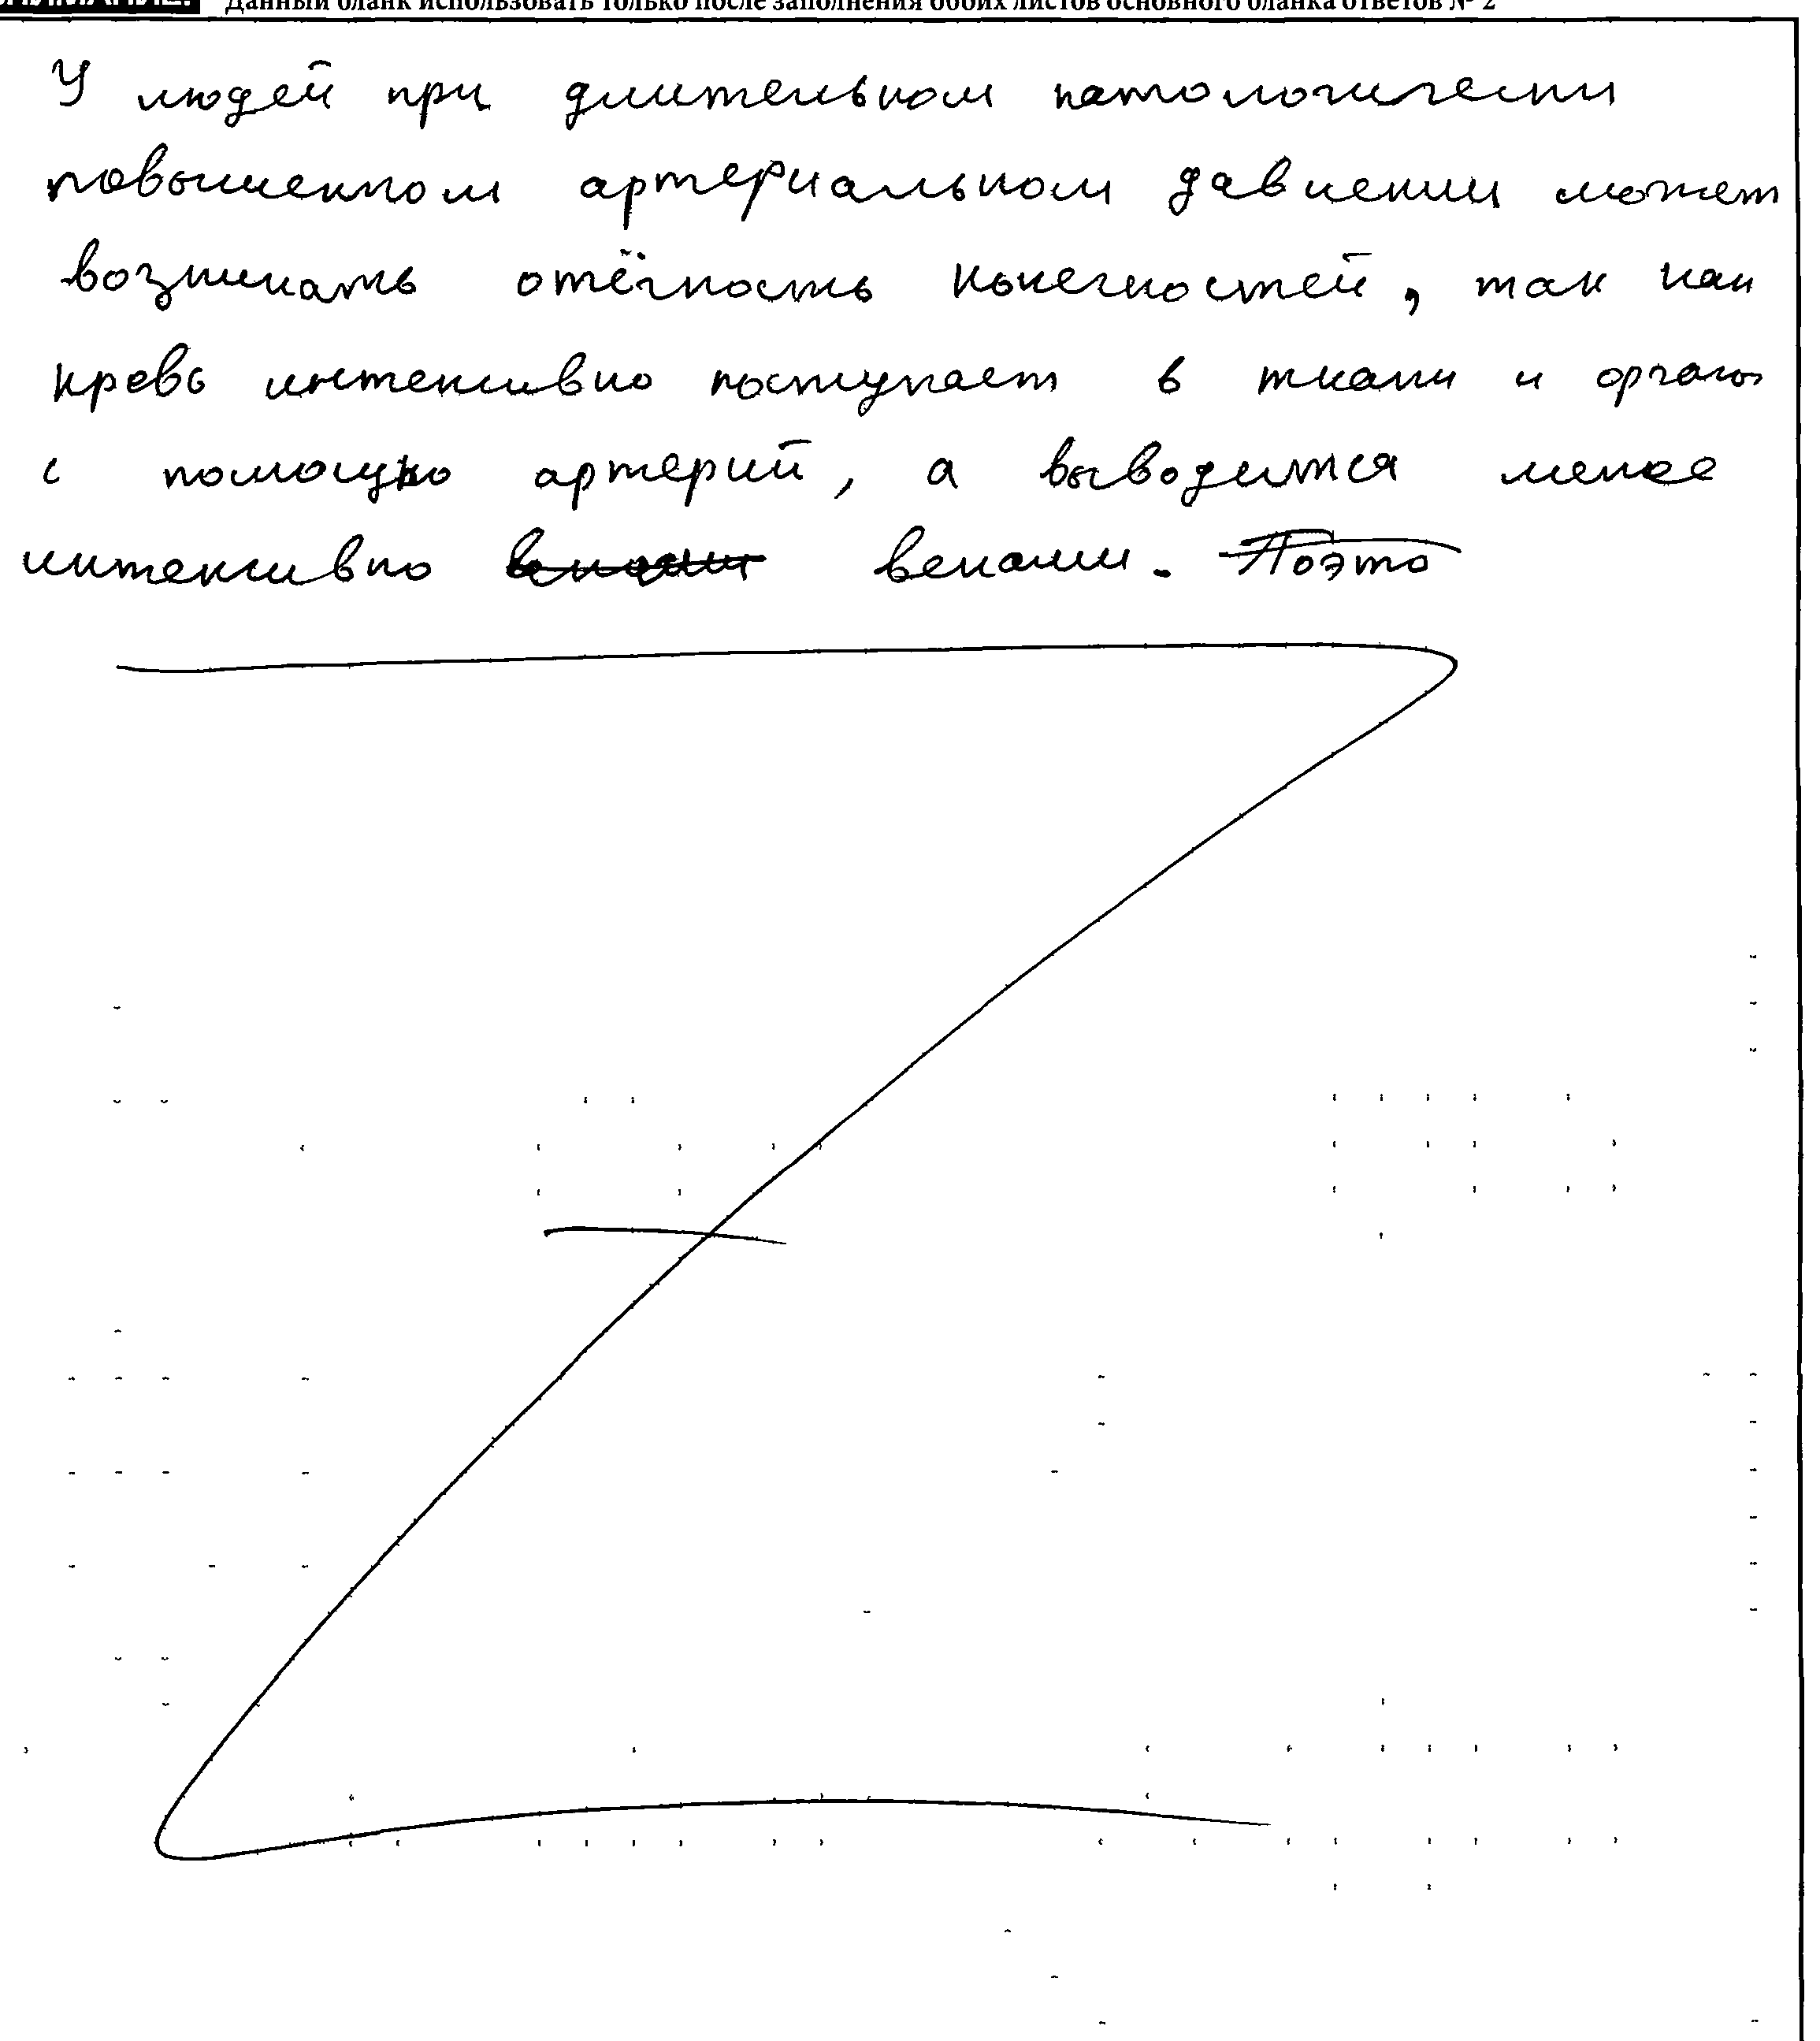 Данный бланк использовать только после заполнения обоих листов основного бланка ответов № 2
У людей при длительном патологически
повышенном артериальном давлении может
возникать отёчность конечностей, так как
кровь интенсивно поступает в ткани и органы
с помощью артерий, а выводится менее
интенсивно венами. Поэто